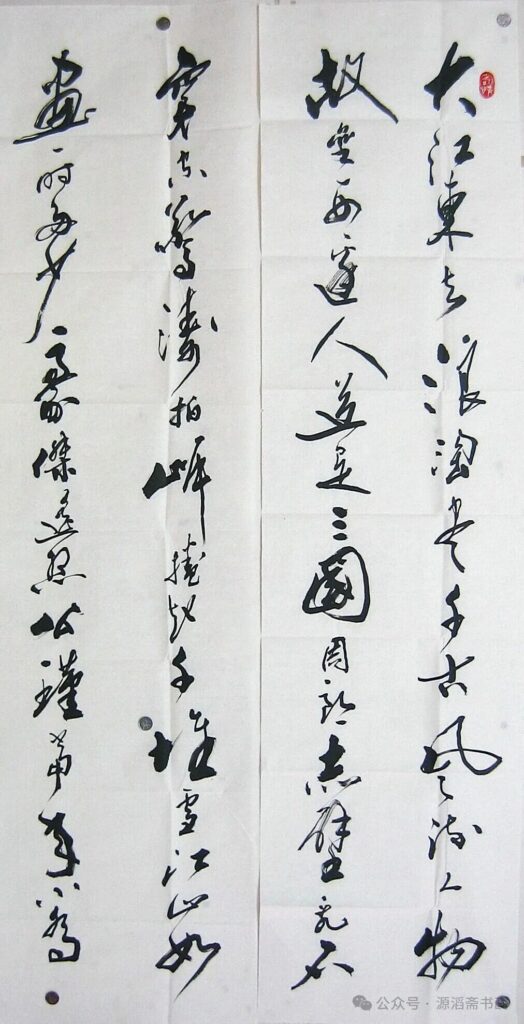 大江東去浪淘盡千古風流人物
故壘西邊人道是三國周郎赤壁亂石
穿空驚濤拍岸捲起千堆雪江山如
畫一時多少豪傑遙想公瑾當年小喬
公众号 · 源滔斋书